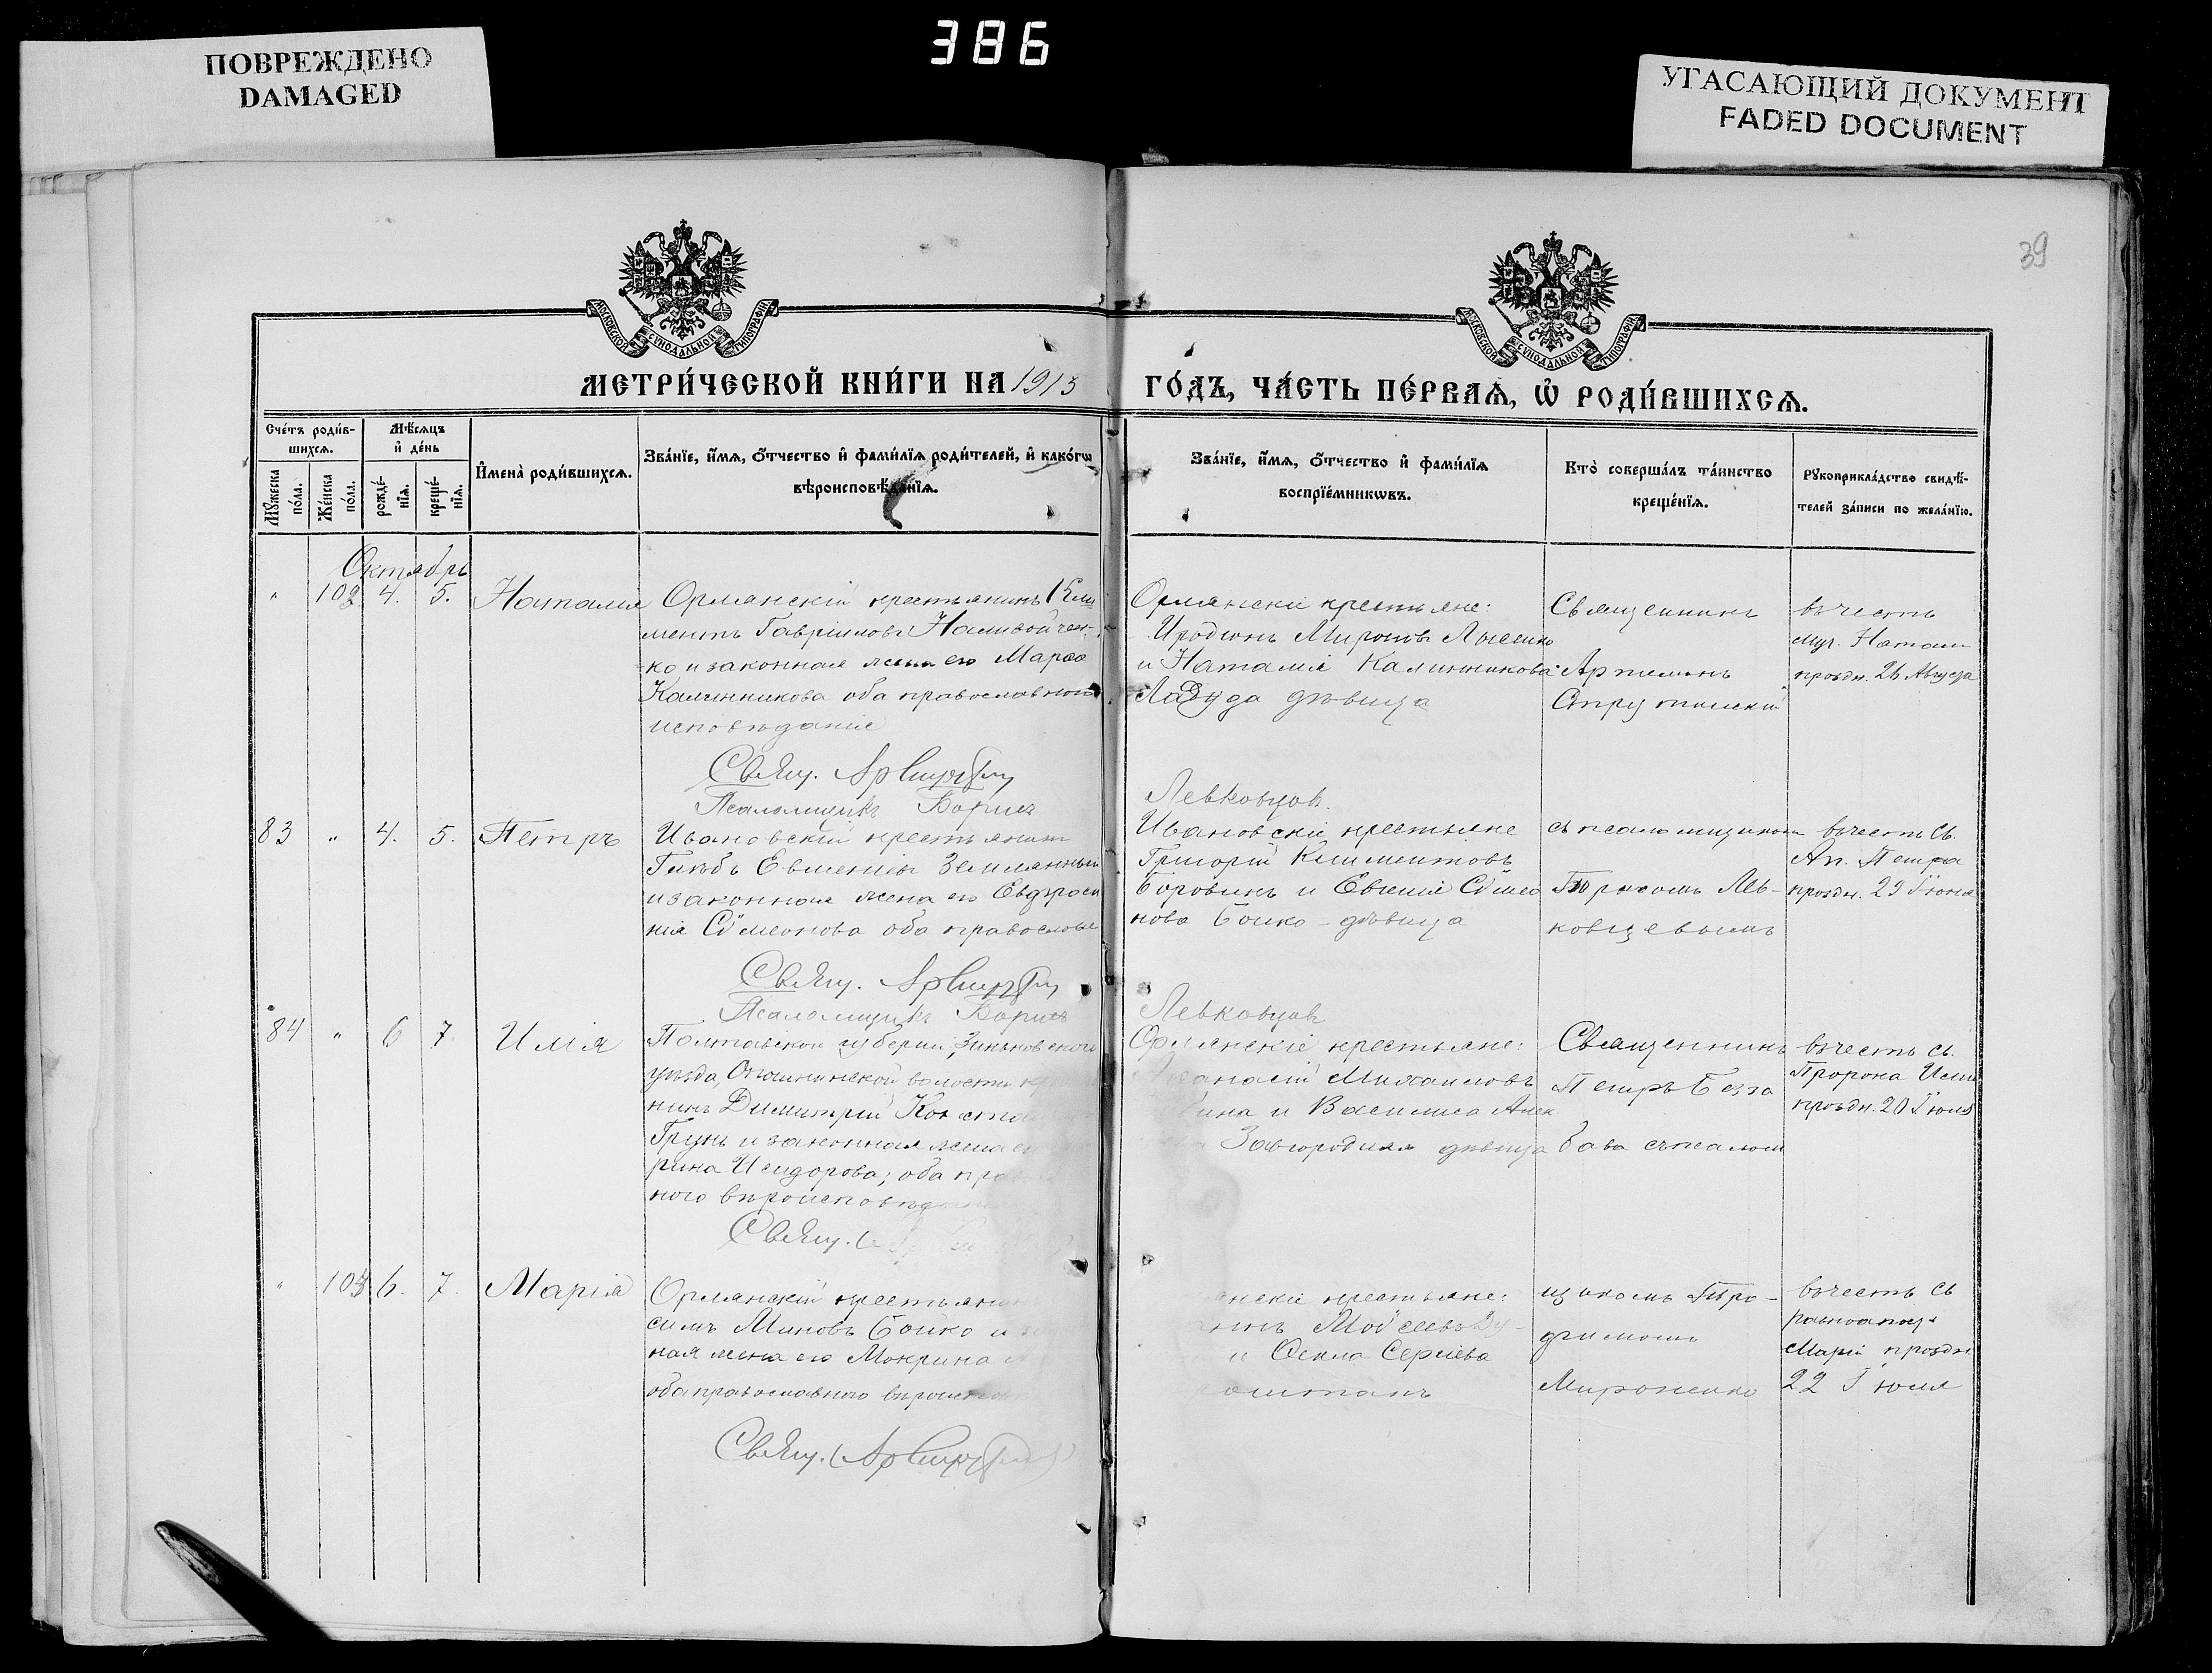 386
ПОВРЕЖДЕНО
DAMAGED
УГАСАЮЩИЙ ДОКУМЕНТ
FADED DOCUMENT
39
МОСКОВСКОЙ СѴНОДАЛЬНОЙ ТИПОГРАФІИ
МОСКОВСКОЙ СѴНОДАЛЬНОЙ ТИПОГРАФІИ
МЕТРИ́ЧЕСКОЙ КНИ́ГИ НА 1913
ГО́ДЪ, ЧА́СТЬ ПЕ́РВАѦ, Ѡ҆ РОДИ́ВШИХСѦ.
Сче́тъ роди́в-
шихсѧ.
Мꙋжеска по́ла.
Же́нска по́ла.
Мѣ́сѧцъ
и҆ де́нь
рожде́-
нїѧ.
креще́-
нїѧ.
И҆мена̀ роди́вшихсѧ.
Зва́нїе, и҆́мѧ, ѻ҆́тчество и҆ фами́лїѧ роди́телей, и҆ како́гѡ
вѣроисповѣ́данїѧ.
Зва́нїе, и҆́мѧ, ѻ҆́тчество и҆ фами́лїѧ
воспрїе́мникѡвъ.
Кто̀ соверша́лъ та́инство
креще́нїѧ.
Рꙋкоприкла́дство свидѣ́-
телей за́писи по жела́нїю.
Октябрь
" 103 4. 5. Наталія
Орлянскій крестьянинъ Кли
ментъ Гавріиловъ Наливайчен-
ко и законная жена его Марѳа
Калинникова оба православнаго
исповѣданія
Орлянскіе крестьяне:
Иродіонъ Мироновъ Лысенко
и Наталія Калинникова
Ладуда дѣвица
Священникъ
Артемонъ
въ честь
муч. Наталіи
праздн. 26 Августа
Свящ.
Псаломщикъ Борисъ
Левковцовъ.
83 " 4. 5. Петръ
Ивановскій крестьянинъ
Глѣбъ Евменіевъ Землянный
и законная жена его Евдроси
нія Сѵмеонова оба православн
Ивановскіе крестьяне
Григорій Климентовъ
Боровикъ и Евгенія Сѵмео
нова Бойко - дѣвица
съ псаломщикомъ
Борисомъ Лев-
ковцевымъ
въ честь Св.
Ап. Петра
праздн. 29 Іюня
Свящ.
Псаломщикъ Борисъ
Левковцовъ
84 " 6 7 Илія
Полтавской губерніи, Зиньковскаго
уѣзда, Опошнянской волости кр
нинъ Димитрій Конста
Грунь и законная жена е
рина Исидорова; оба право
наго вѣроисповѣдан
Орлянскіе крестьяне:
Михаиловъ
и Василиса Алек
Завгородняя дѣвица
Священникъ
Петръ Безза
бава съ псалом
въ честь св.
Пророка Иліи
праздн. 20 Іюля
Свящ.
" 104 6. 7. Марія
Орлянскій крестьянин
симъ Миновъ Бойко и за
ная жена его Мокрина
оба православнаго вѣроиспов
нскіе крестьяне:
Моѵсеевъ
и Ѳекла Сергіева
щикомъ Тро-
фимомъ
Мироненко
въ честь св
равноап
Маріи праздн
22 Іюля
Свящ.